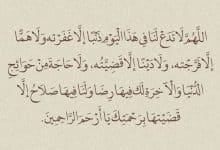 اللَّهُمَّ لَا تَدَعْ لَنَا فِي هَذَا الْيَوْمِ ذَنْبًا إِلَّا غَفَرْتَه وَلَا هَمًّا
إِلَّا فَرَّجْتَه، وَلَا دَيْنًا إِلَّا قَضَيْتَه، وَلَا حَاجَةً مِنْ حَوَائِجِ
الدُّنْيَا وَالْآخِرَةِ لَكَ فِيهَا رِضًا وَلَنَا فِيهَا صَلَاحٌ إِلَّا
قَضَيْتَهَا بِرَحْمَتِكَ يَا أَرْحَمَ الرَّاحِمِينَ.